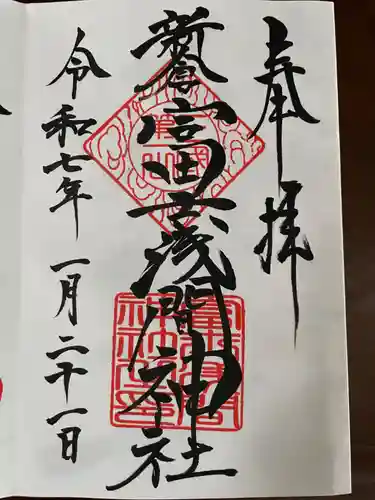 奉拝
新倉富士浅間神社
令和七年 一月二十一日